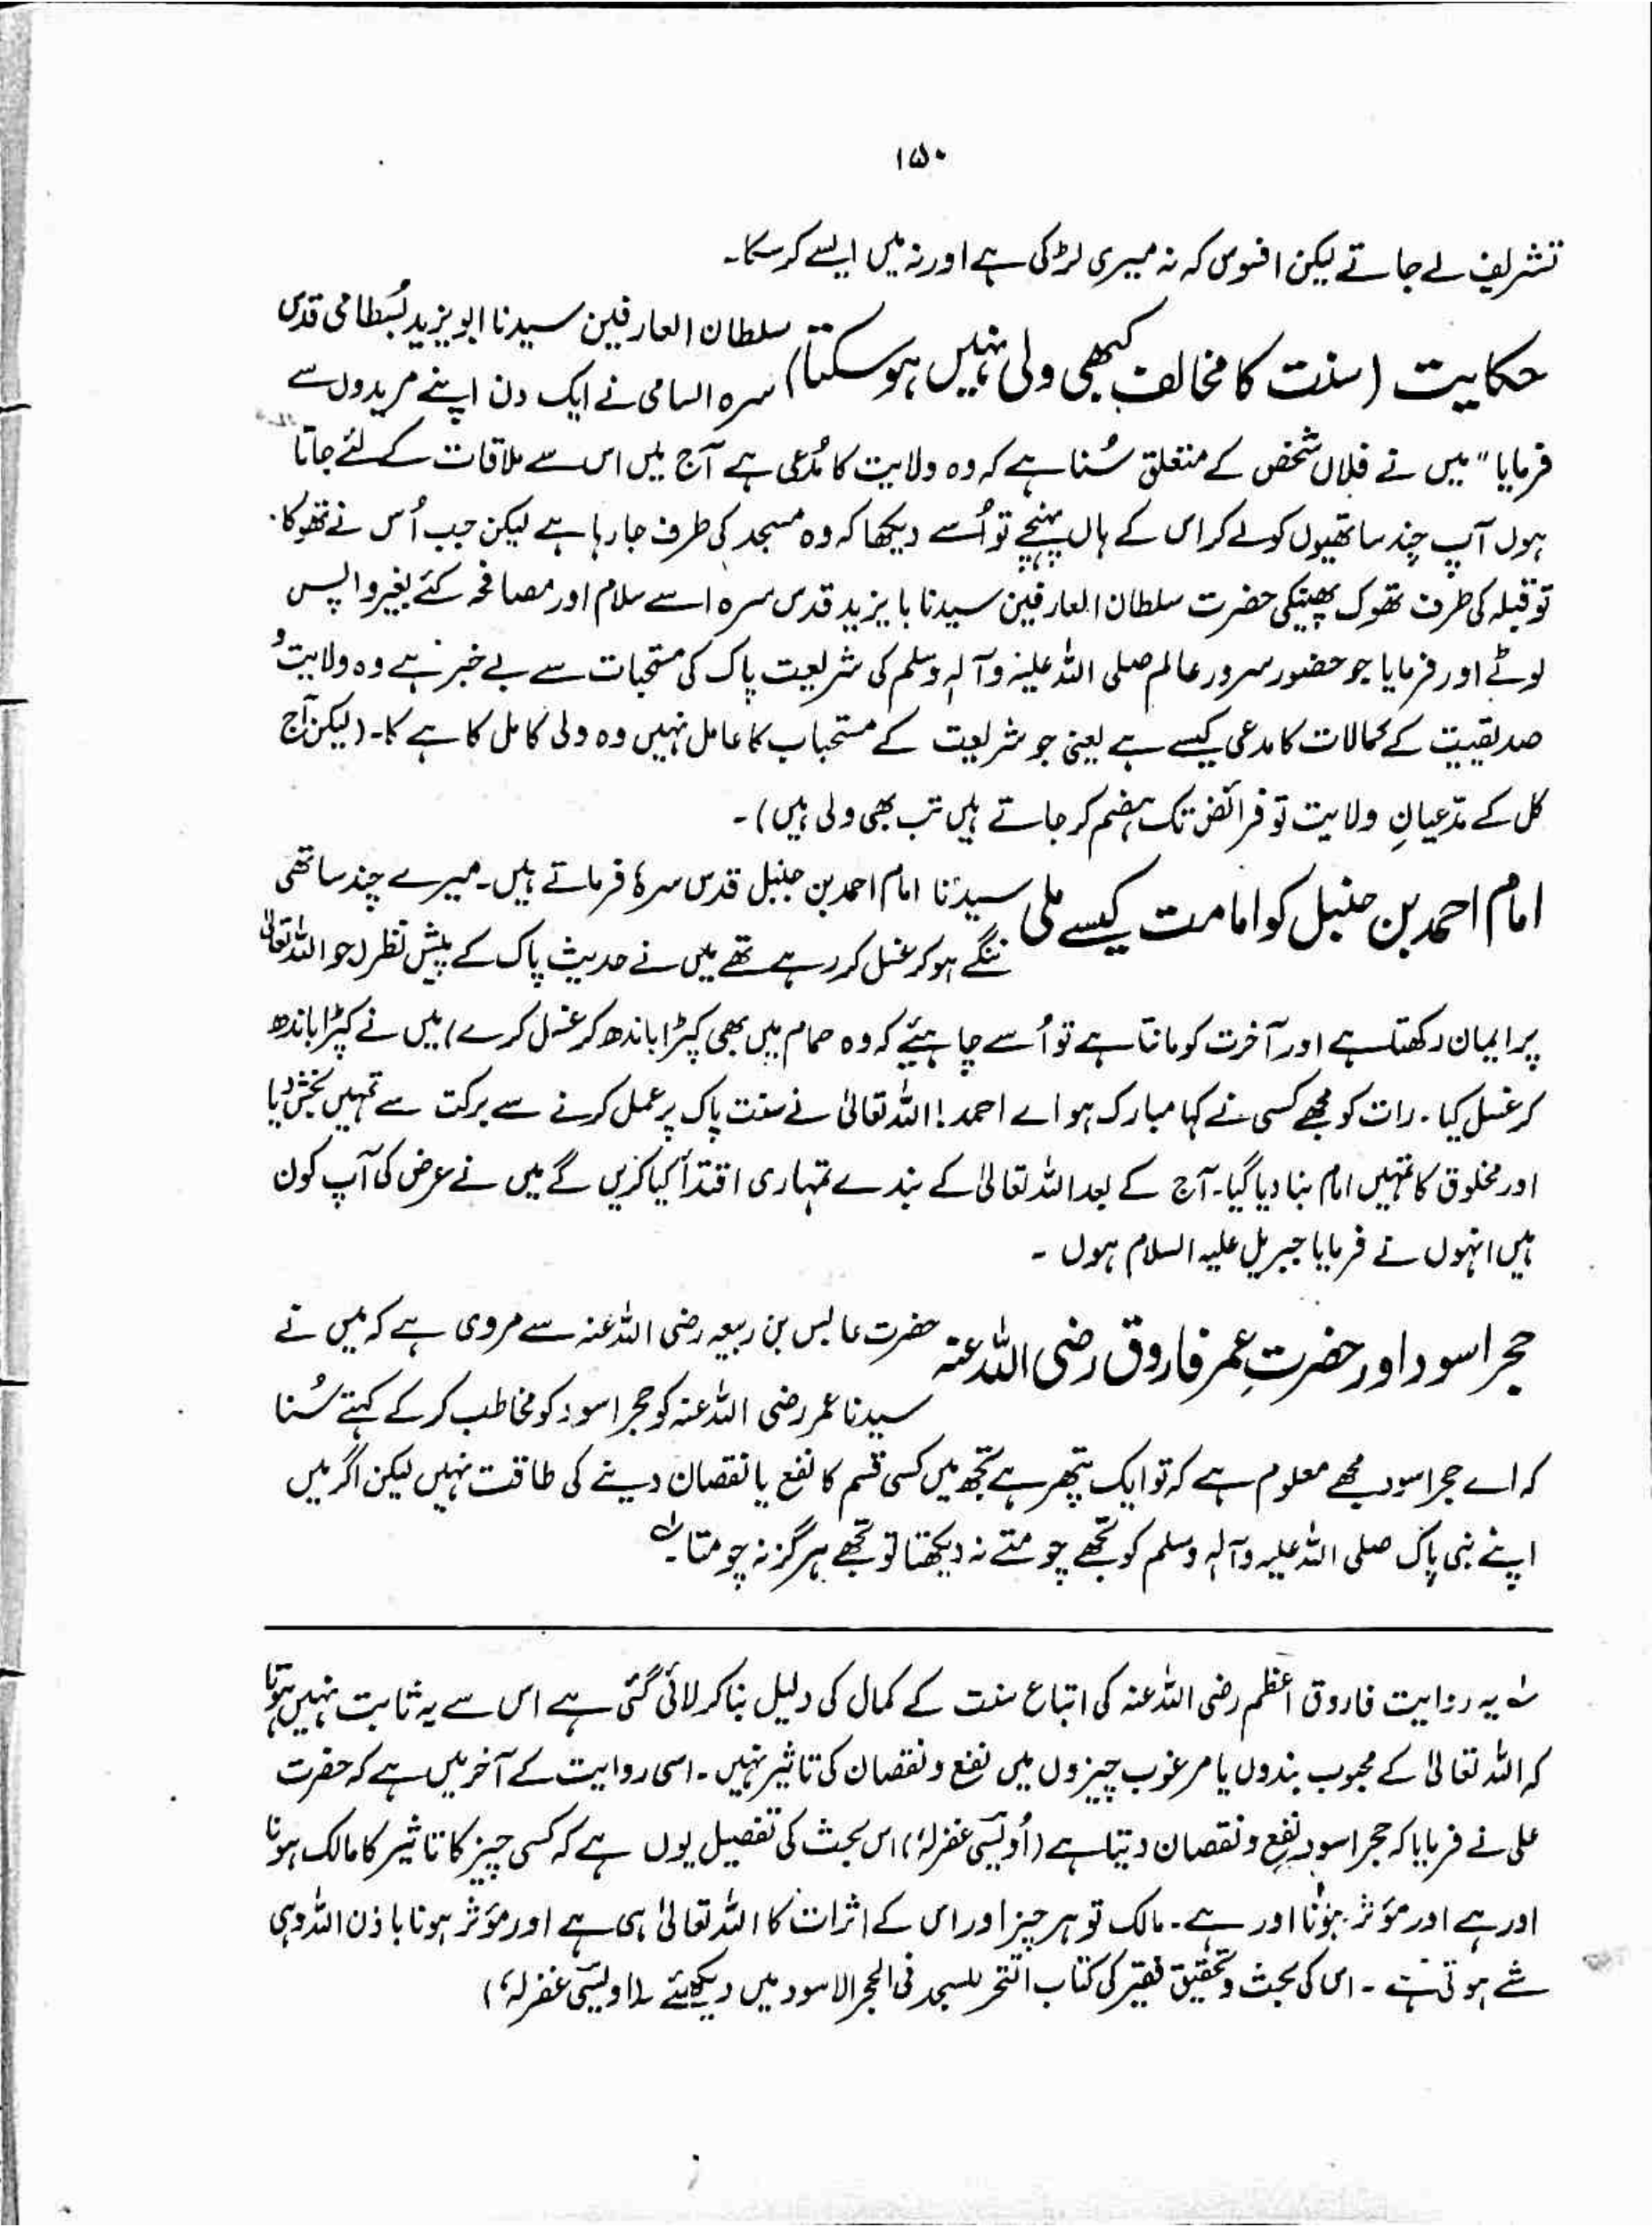 ۱۵۰
تشریف لے جاتے لیکن افسوس کہ نہ میری لڑکی ہے اور نہ میں ایسے کر سکا۔
حکایت (سنت کا مخالف کبھی ولی نہیں ہو سکتا)
سلطان العارفین سیدنا ابو یزید بُسطامی قدس
سرہ السامی نے ایک دن اپنے مریدوں سے
فرمایا "میں نے فلاں شخص کے متعلق سُنا ہے کہ وہ ولایت کا مُدعی ہے آج میں اس سے ملاقات کے لئے جاتا
ہوں آپ چند ساتھیوں کو لے کر اس کے ہاں پہنچے تو اُسے دیکھا کہ وہ مسجد کی طرف جا رہا ہے لیکن جب اُس نے تھوکا۔
تو قبلہ کی طرف تھوک پھینکی حضرت سلطان العارفین سیدنا بایزید قدس سرہ اسے سلام اور مصافحہ کئے بغیر واپس
لوٹے اور فرمایا جو حضور سرور عالم صلی اللہ علیہ وآلہٖ وسلم کی شریعت پاک کی مستحبات سے بے خبر ہے وہ ولایت و
صدیقیت کے کمالات کا مدعی کیسے ہے یعنی جو شریعت کے مستحباب کا عامل نہیں وہ ولی کامل کا ہے کا۔ (لیکن آج
کل کے مدّعیانِ ولایت تو فرائض تک ہضم کر جاتے ہیں تب بھی ولی ہیں)۔
امام احمد بن حنبل کو امامت کیسے ملی
سیدنا امام احمد بن حنبل قدس سرہٗ فرماتے ہیں۔ میرے چند ساتھی
ننگے ہو کر غسل کر رہے تھے میں نے حدیث پاک کے پیش نظر (جو اللہ تعالیٰ
پر ایمان رکھتا ہے اور آخرت کو مانتا ہے تو اُسے چاہیئے کہ وہ حمام میں بھی کپڑا باندھ کر غسل کرے) میں نے کپڑا باندھ
کر غسل کیا۔ رات کو مجھے کسی نے کہا مبارک ہو اے احمد! اللہ تعالیٰ نے سنت پاک پر عمل کرنے سے برکت سے تمہیں بخش دیا
اور مخلوق کا تمہیں امام بنا دیا گیا۔ آج کے بعد اللہ تعالیٰ کے بندے تمہاری اقتدأ کیا کریں گے میں نے عرض کی آپ کون
ہیں انہوں نے فرمایا جبریل علیہ السلام ہوں ۔
حجر اسود اور حضرتِ عمر فاروق رضی اللہ عنہ
حضرت عابس بن ربیعہ رضی اللہ عنہ سے مروی ہے کہ میں نے
سیدنا عمر رضی اللہ عنہ کو حجر اسود کو مخاطب کر کے کہتے سُنا
کہ اے حجر اسود مجھے معلوم ہے کہ تو ایک پتھر ہے تجھ میں کسی قسم کا نفع یا نقصان دینے کی طاقت نہیں لیکن اگر میں
اپنے نبی پاک صلی اللہ علیہ وآلہٖ وسلم کو تجھے چومتے نہ دیکھتا تو تجھے ہرگز نہ چومتا۔
یہ روایت فاروق اعظم رضی اللہ عنہ کی اتباع سنت کے کمال کی دلیل بنا کر لائی گئی ہے اس سے یہ ثابت نہیں ہوتا
کہ اللہ تعالیٰ کے محبوب بندوں یا مرغوب چیزوں میں نفع و نقصان کی تاثیر نہیں۔ اسی روایت کے آخر میں ہے کہ حضرت
علی نے فرمایا کہ حجر اسود نفع و نقصان دیتا ہے (اُویسی غفرلہٗ) اس بحث کی تفصیل یوں ہے کہ کسی چیز کا تاثیر کا مالک ہونا
اور ہے اور مؤثر ہونا اور ہے۔ مالک تو ہر چیز اور اس کے اثرات کا اللہ تعالیٰ ہی ہے اور مؤثر ہونا باذن اللہ وہی
شے ہوتی ہے ۔ اس کی بحث و تحقیق فقیر کی کتاب فی الحجر الاسود میں دیکھئے (اویسی غفرلہٗ)